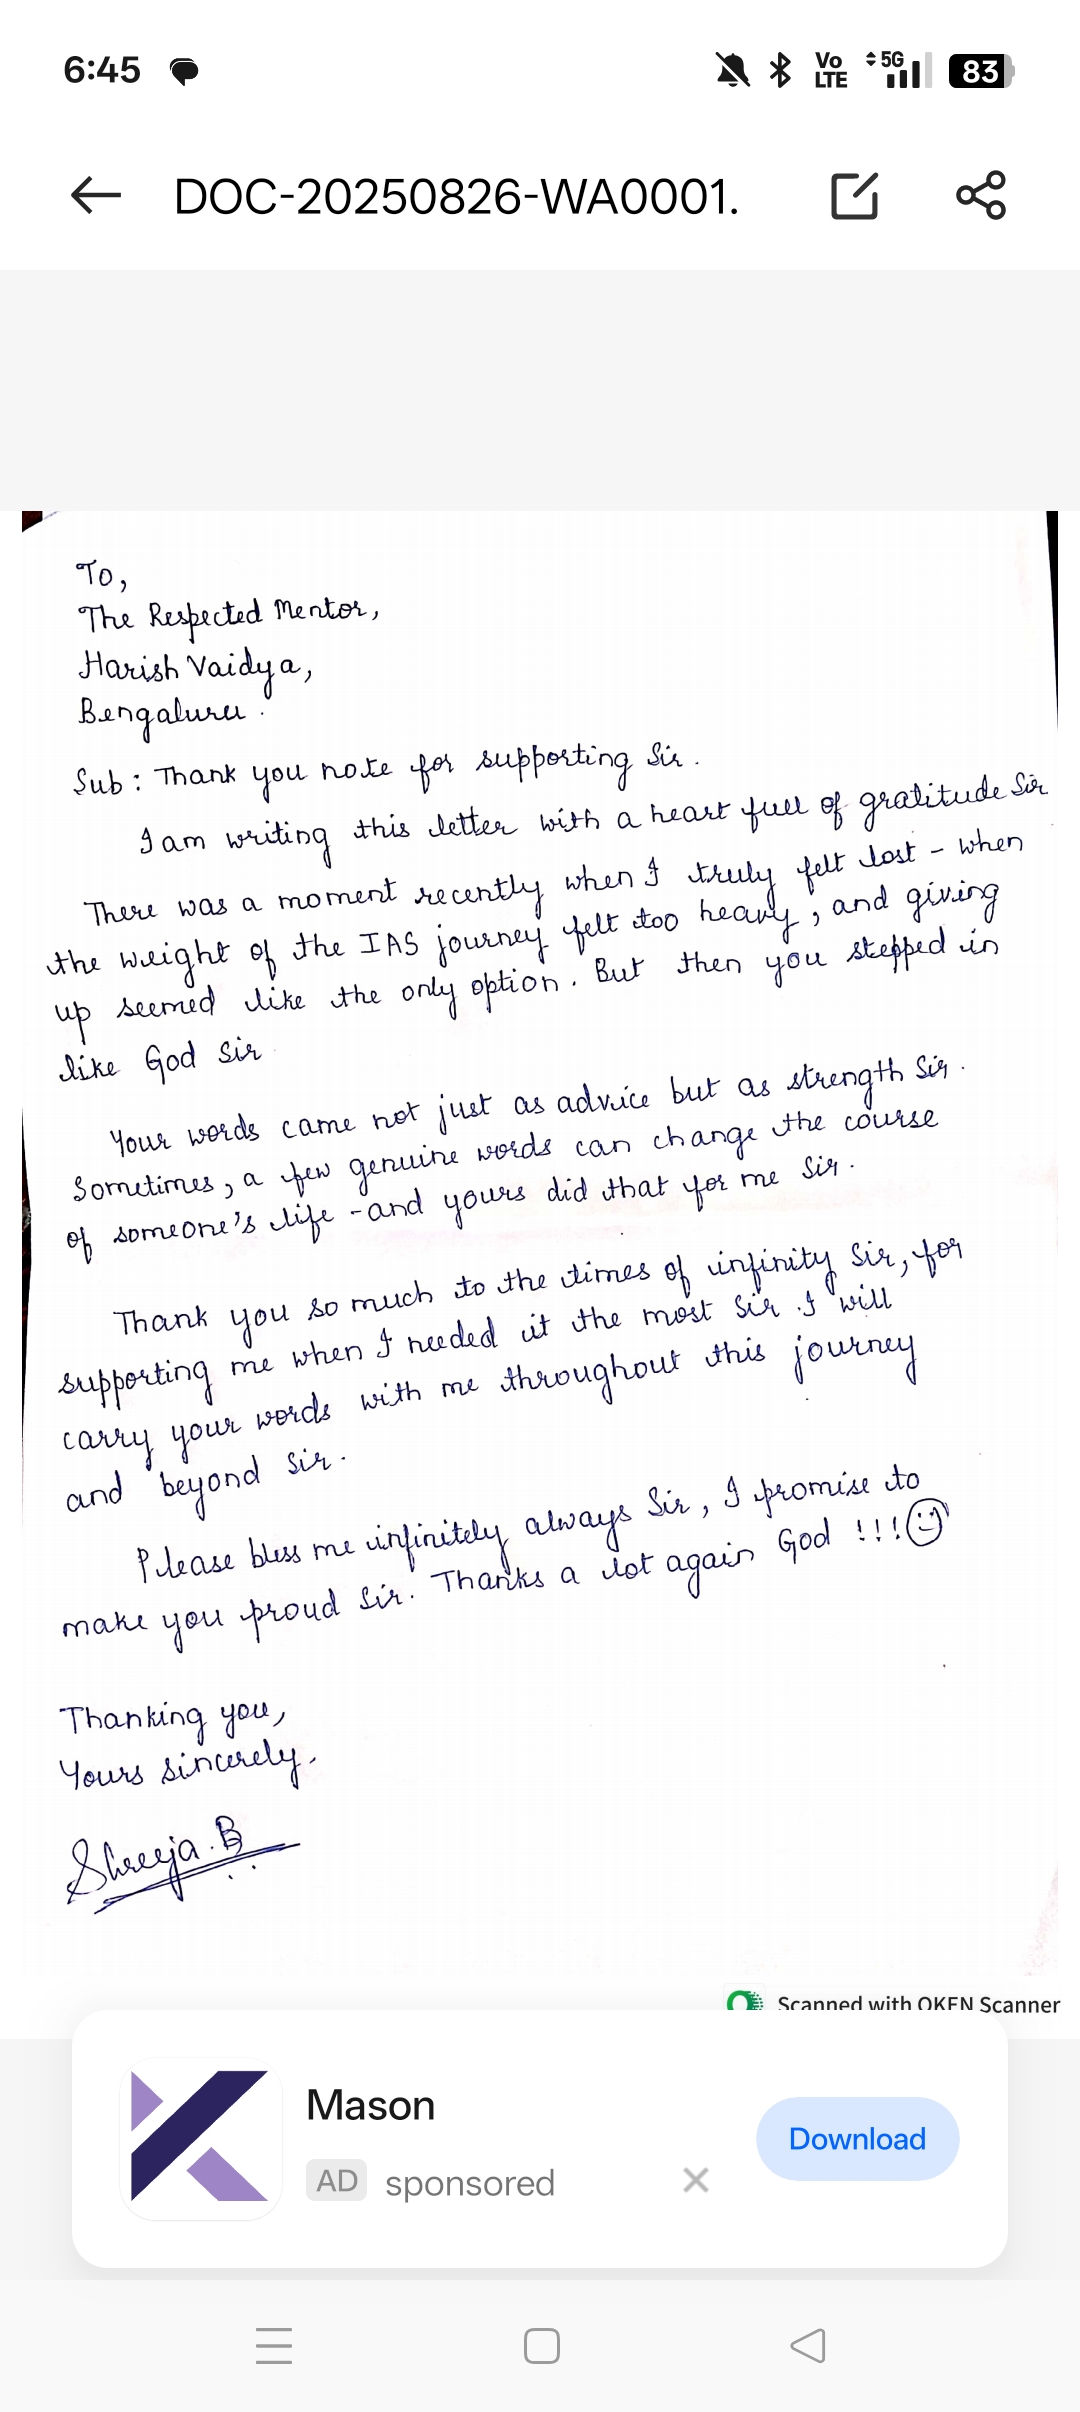 6:45
Vo LTE 5G 83
DOC-20250826-WA0001.
To,
The Respected Mentor,
Harish Vaidya,
Bengaluru.
Sub: Thank you note for supporting Sir.
I am writing this letter with a heart full of gratitude Sir
There was a moment recently when I truly felt lost - when
the weight of the IAS journey felt too heavy, and giving
up seemed like the only option. But then you stepped in
like God Sir
Your words came not just as advice but as strength Sir.
Sometimes, a few genuine words can change the course
of someone's life - and yours did that for me Sir.
Thank you so much to the times of infinity Sir, for
supporting me when I needed it the most Sir. I will
carry your words with me throughout this journey
and beyond Sir.
Please bless me infinitely always Sir, I promise to
make you proud Sir. Thanks a lot again God !!!
Thanking you,
Yours sincerely,
Shreeja.B
Scanned with OKEN Scanner
Mason
AD sponsored
Download